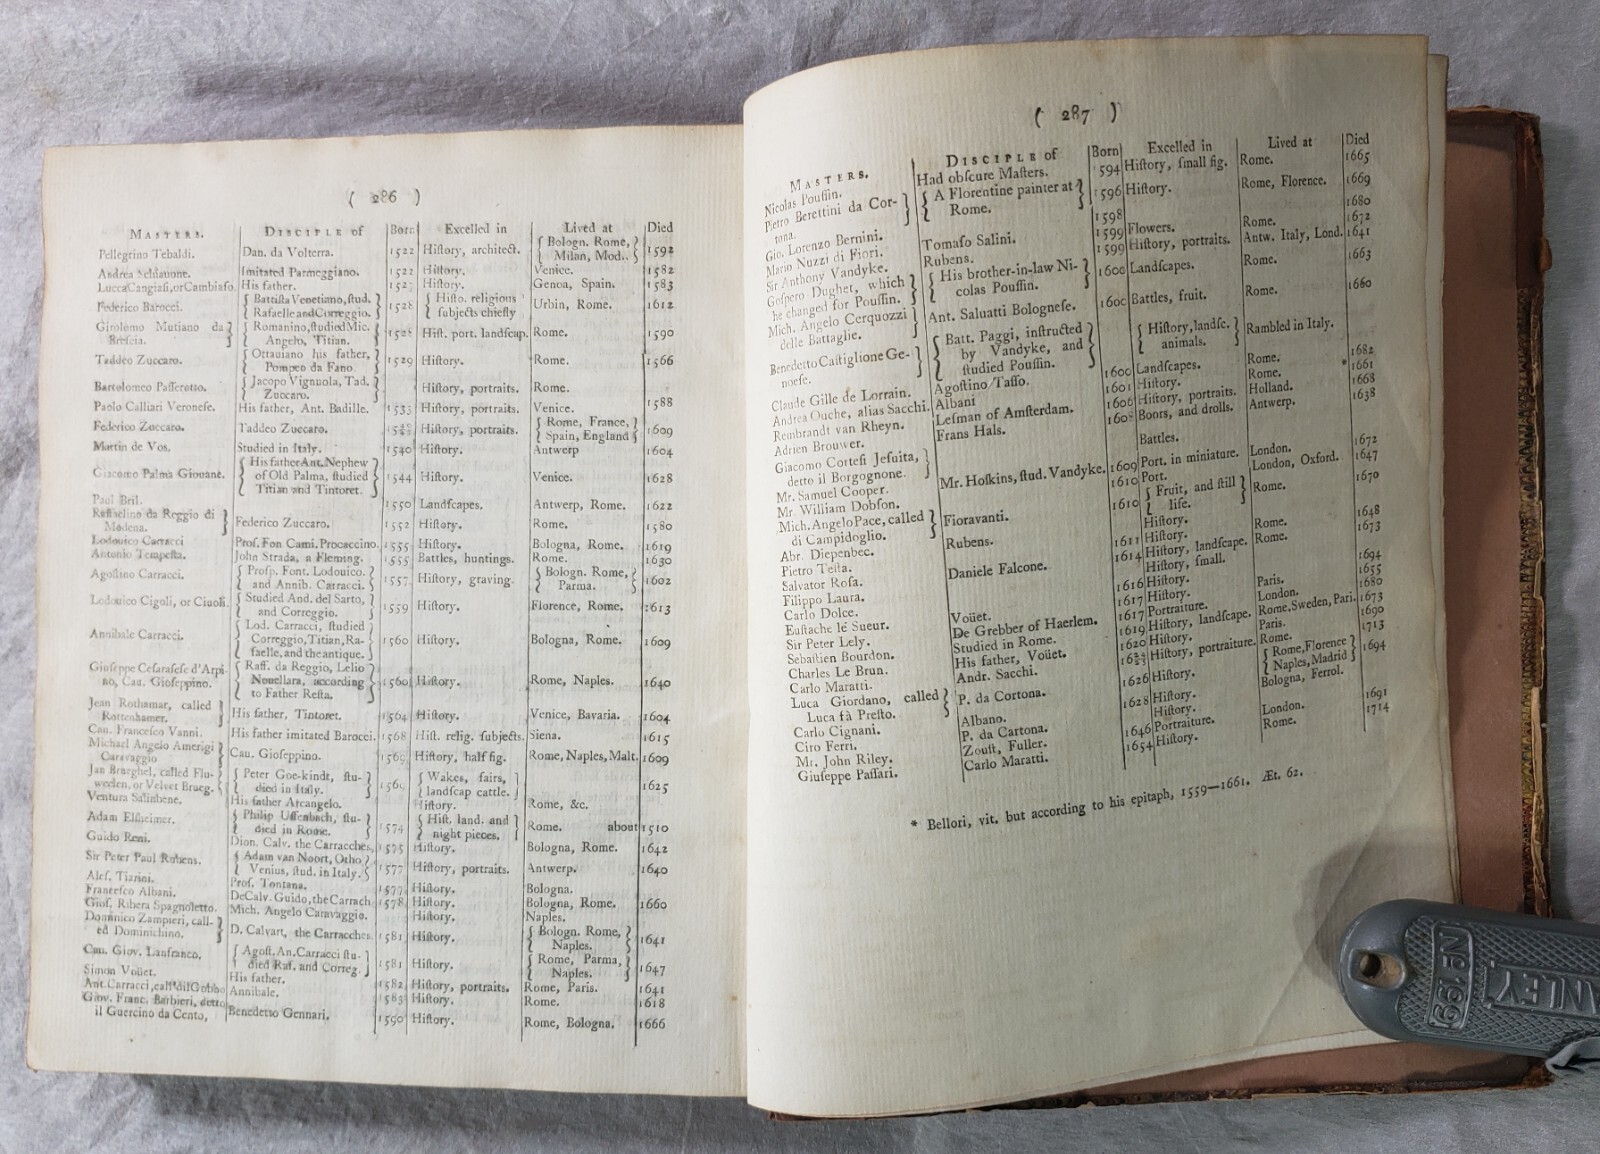 ( 286 )
MASTERS. DISCIPLE of Born Excelled in Lived at Died
Pellegrino Tebaldi. Dan. da Volterra. 1522 Hiſtory, architect. { Bologn. Rome, Milan, Mod.. } 1592
Andrea Schiauone. Imitated Parmeggiano. 1522 Hiſtory. Venice. 1582
Lucca Cangiaſi, or Cambiaſo. His father. 1527 Hiſtory. Genoa, Spain. 1583
Federico Barocci. { Battiſta Venetiano, ſtud. Rafaelle and Correggio. } 1528 { Hiſto. religious ſubjects chiefly Urbin, Rome. 1612
Girolomo Mutiano da Breſcia. } { Romanino, ſtudied Mic. Angelo, Titian. } 1528 Hiſt. port. landſcap. Rome. 1590
Taddeo Zuccaro. { Ottauiano his father, Pompeo da Fano } 1529 Hiſtory. Rome. 1566
Bartolomeo Paſſerotto. { Jacopo Vignuola, Tad. Zuccaro. } Hiſtory, portraits. Rome.
Paolo Calliari Veroneſe. His father, Ant. Badille. 1533 Hiſtory, portraits. Venice. 1588
Federico Zoccaro. Taddeo Zuccaro. Hiſtory, portraits. { Rome, France, Spain, England } 1609
Martin de Vos. Studied in Italy. 1540 Hiſtory. Antwerp 1604
Giacomo Palma Giouane. { His father Ant. Nephew of Old Palma, ſtudied Titian and Tintoret. } 1544 Hiſtory. Venice. 1628
Paul Bril. 1550 Landſcapes. Antwerp, Rome. 1622
Raffaelino da Reggio di Modena. } Federico Zuccaro. 1552 Hiſtory. Rome. 1580
Lodouico Carracci Proſ. Fon Cami. Procaccino. 1555 Hiſtory. Bologna, Rome. 1619
Antonio Tempeſta. John Strada, a Fleming. 1555 Battles, huntings. Rome. 1630
Agoſtino Carracci. { Proſp. Font. Lodouico. and Annib. Carracci. } 1557 Hiſtory, graving. { Bologn. Rome, Parma. } 1602
Lodouico Cigoli, or Ciuoli. { Studied And. del Sarto, and Correggio. } 1559 Hiſtory. Florence, Rome. 1613
Annibale Carracci. { Lod. Carracci, ſtudied Correggio, Titian, Rafaelle, and the antique. } 1560 Hiſtory. Bologna, Rome. 1609
Giuſeppe Ceſaraſeſe d'Arpino, Cau. Gioſeppino. { Raff. da Reggio, Lelio Nouellara, according to Father Reſta. } 1560 Hiſtory. Rome, Naples. 1640
Jean Rothamar, called Rottenhamer. } His father, Tintoret. 1564 Hiſtory. Venice, Bavaria. 1604
Cau. Franceſco Vanni. His father imitated Barocci. 1568 Hiſt. relig. ſubjects. Siena. 1615
Michael Angelo Amerigi Caravaggio } Cau. Gioſeppino. 1569 Hiſtory, half fig. Rome, Naples, Malt. 1609
Jan Brueghel, called Fluweelen, or Velvet Brueg. } { Peter Goe-kindt, ſtudied in Italy. } 1569 { Wakes, fairs, landſcap cattle. } 1625
Ventura Salinbene. His father Arcangelo. Hiſtory. Rome, &c.
Adam Elſheimer. { Philip Uffenbach, ſtudied in Rome. } 1574 { Hiſt. land. and night pieces. } Rome. about 1510
Guido Reni. Dion. Calv. the Carracches, 1575 Hiſtory. Bologna, Rome. 1642
Sir Peter Paul Rubens. { Adam van Noort, Otho Venius, ſtud. in Italy. } 1577 Hiſtory, portraits. Antwerp. 1640
Aleſ. Tiarini. Proſ. Fontana. 1577 Hiſtory. Bologna.
Franceſco Albani. De Calv. Guido, the Carrach. 1578 Hiſtory. Bologna, Rome. 1660
Gioſ. Ribera Spagnoletto. Mich. Angelo Caravaggio. Hiſtory. Naples.
Dominico Zampieri, called Dominichino. } D. Calvart, the Carracches. 1581 Hiſtory. { Bologn. Rome, Naples. } 1641
Cau. Giov. Lanfranco. { Agoſt. An. Carracci ſtudied Raf. and Correg. } 1581 Hiſtory. { Rome, Parma, Naples. } 1647
Simon Voüet. His father. 1582 Hiſtory, portraits. Rome, Paris. 1641
Ant. Carracci, call'd il Gobbo Annibale. 1583 Hiſtory. Rome. 1618
Giov. Franc. Barbieri, detto il Guercino da Cento, Benedetto Gennari. 1590 Hiſtory. Rome, Bologna. 1666
( 287 )
MASTERS. DISCIPLE of Born Excelled in Lived at Died
Nicolas Pouſſin. Had obſcure Maſters. 1594 Hiſtory, ſmall fig. Rome. 1665
Pietro Berettini da Cortona. } { A Florentine painter at Rome. } 1596 Hiſtory. Rome, Florence. 1669
Gio. Lorenzo Bernini. 1598 1680
Mario Nuzzi di Fiori. Tomaſo Salini. 1599 Flowers. Rome. 1672
Sir Anthony Vandyke. Rubens. 1599 Hiſtory, portraits. Antw. Italy, Lond. 1641
Goſpero Dughet, which he changed for Pouſſin. } { His brother-in-law Nicolas Pouſſin. } 1600 Landſcapes. Rome. 1663
Mich. Angelo Cerquozzi delle Battaglie. } Ant. Saluatti Bologneſe. 1600 Battles, fruit. Rome. 1660
Benedetto Caſtiglione Genoeſe. } { Batt. Paggi, inſtructed by Vandyke, and ſtudied Pouſſin. } { Hiſtory, landſc. animals. } Rambled in Italy.
Claude Gille de Lorrain. Agoſtino Taſſo. 1600 Landſcapes. Rome. 1682
Andrea Ouche, alias Sacchi. Albani 1601 Hiſtory. Rome. * 1661
Rembrandt van Rheyn. Leſman of Amſterdam. 1606 Hiſtory, portraits. Holland. 1668
Adrien Brouwer. Frans Hals. 1608 Boors, and drolls. Antwerp. 1638
Giacomo Corteſi Jeſuita, detto il Borgognone. } Battles.
Mr. Samuel Cooper. Mr. Hoſkins, ſtud. Vandyke. 1609 Port. in miniature. London. 1672
Mr. William Dobſon. 1610 Port. London, Oxford. 1647
Mich. Angelo Pace, called di Campidoglio. } Fioravanti. 1610 { Fruit, and ſtill life. } Rome. 1670
Abr. Diepenbec. Rubens. Hiſtory.
Pietro Teſta. 1611 Hiſtory. Rome. 1648
Salvator Roſa. Daniele Falcone. 1614 Hiſtory, landſcape. Rome. 1673
Filippo Laura. Hiſtory, ſmall. 1694
Carlo Dolce. 1616 Hiſtory.
Euſtache le Sueur. Voüet. 1617 Hiſtory. Paris. 1655
Sir Peter Lely. De Grebber of Haerlem. 1617 Portraiture. London. 1680
Sebaſtien Bourdon. Studied in Rome. 1619 Hiſtory, landſcape. Rome. Sweden, Pari. 1673
Charles Le Brun. His father, Voüet. 1620 Hiſtory. Paris. 1690
Carlo Maratti. Andr. Sacchi. Hiſtory, portraiture. Rome. 1713
Luca Giordano, called Luca fà Preſto. } P. da Cortona. 1626 Hiſtory. { Rome, Florence Naples, Madrid } 1694
Carlo Cignani. Albano. 1628 Hiſtory. Bologna, Ferrol.
Ciro Ferri. P. da Cortona. Hiſtory.
Mr. John Riley. Zouſt, Fuller. 1646 Portraiture. London. 1691
Giuſeppe Paſſari. Carlo Maratti. 1654 Hiſtory. Rome. 1714
* Bellori, vit. but according to his epitaph, 1559—1661. Æt. 62.
Nº 199